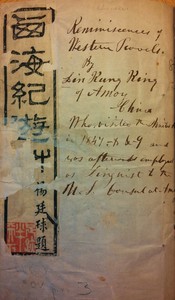 西海紀遊草
Reminiscences of
Western Travels.
By
Lin King King
of Amoy
China
Who visited the United
in 1847-8 & 9 and
was afterwards employed
as linguist to the
U. S. Consul at Amoy